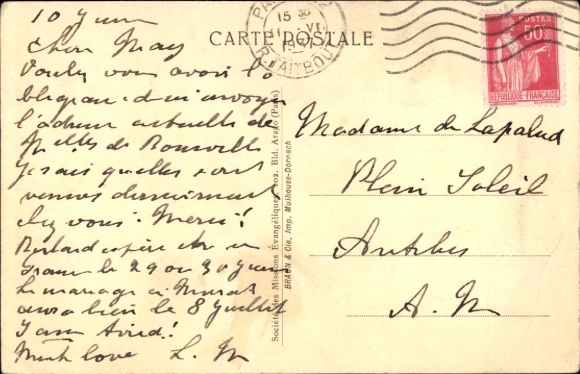 10 Juin
Cher May
Voulez vous avoir l'o
bligeance de m'envoyer
l'adresse actuelle de
Melles de Bonneville
Je sais qu'elles sont
venues dernièrement
chez vous. Merci!
espère être en
France le 29 ou 30 Juin
Le mariage à
aura lieu le 8 Juillet
Much love L. M
CARTE POSTALE
15
POSTES
50c
REPUBLIQUE FRANÇAISE
Société des Missions Evangéliques, 102, Bld. Arago (Paris)
BRAUN & Cie, Imp. Mulhouse-Dornach
Madame de Lapalud
Plein Soleil
Antibes
A. M